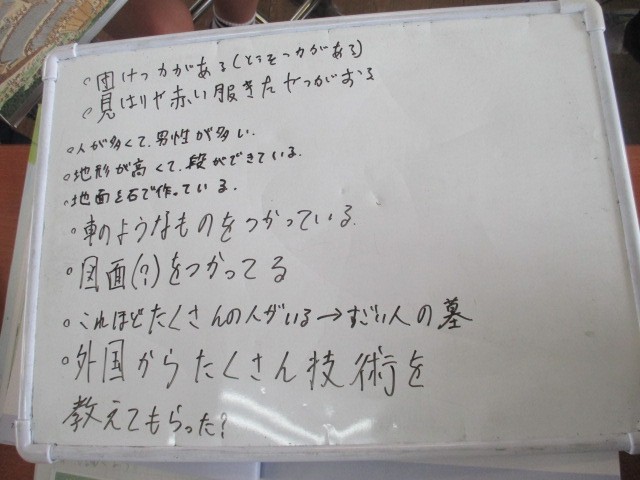 。団けつ力がある(とうそつ力がある)
。見はりや赤い服きたやつがおる
。人が多くて、男性が多い.
。地形が高くて、段ができている.
。地面を石で作っている.
。車のようなものをつかっている.
。図面(?)をつかってる
。これほどたくさんの人がいる→すごい人の墓
。外国からたくさん技術を
教えてもらった?